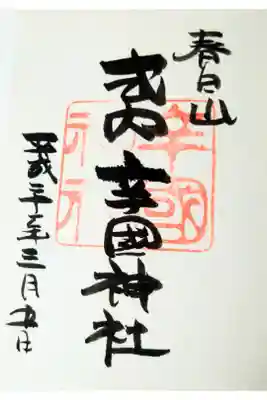 春日山
式内 辛國神社
平成二十年三月五日